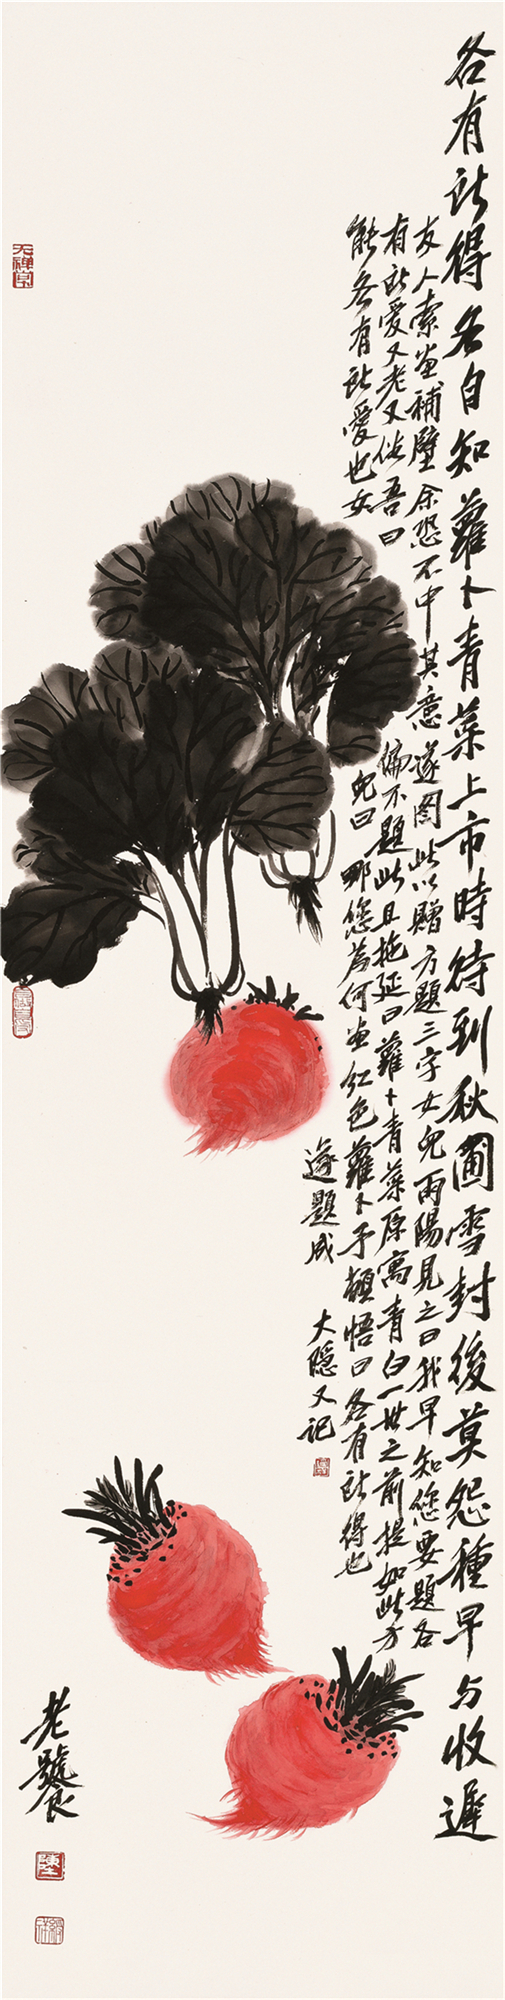 各有所得各自知蘿卜青菜上市時待到秋圃雪封後莫怨種早与收遲
友人索画補壁余恐不中其意遂图此以贈方題三字女兒雨陽見之曰我早知您要題各
有所愛又老又俗吾曰偏不題此且拖延曰蘿卜青菜原寓青白一世之前提如此方
能各有所愛也女兒曰那您為何画红色蘿卜予頓悟曰各有所得也
遂題成 大隱又记
老饕
陸